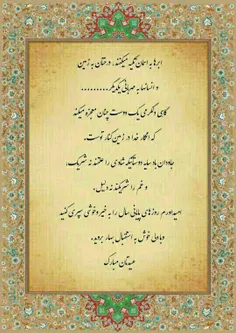 ابرها به آسمان تکیه میکنند، درختان به زمین
و انسانها به مهربانی یکدیگر..........
گاهی دلگرمی یک دوست چنان معجزه میکند
که انگار خدا در زمین کنار توست.
جاودان باد سایه دوستانیکه شادی را علتند نه شریک،
و غم را شریکند نه دلیل.
امیدوارم روزهای پایانی سال را به خیر و خوشی سپری کنید
و با دلی خوش به استقبال بهار بروید.
عیدتان مبارک